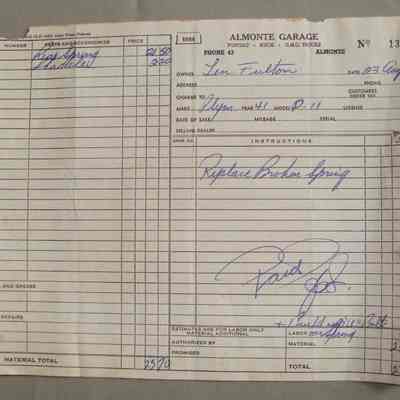 ALMONTE GARAGE
PONTIAC - BUICK - G.M.C. TRUCKS
PHONE 43 ALMONTE
No 13
NUMBER PARTS AND ACCESSORIES PRICE
Rear Spring 21 50
Shackles 2 20
OWNER Len Fulton DATE 23 Aug
ADDRESS PHONE
CHARGE TO CUSTOMERS ORDER NO.
MAKE Plym YEAR 41 MODEL P.11 LICENSE
DATE OF SALE MILEAGE SERIAL
SELLING DEALER
INSTRUCTIONS
Replace Broken Spring
Paid
AND GREASE
REPAIRS
ESTIMATES ARE FOR LABOR ONLY
MATERIAL ADDITIONAL
LABOR on Spring
AUTHORIZED BY MATERIAL
PROMISED
MATERIAL TOTAL 23 70 TOTAL